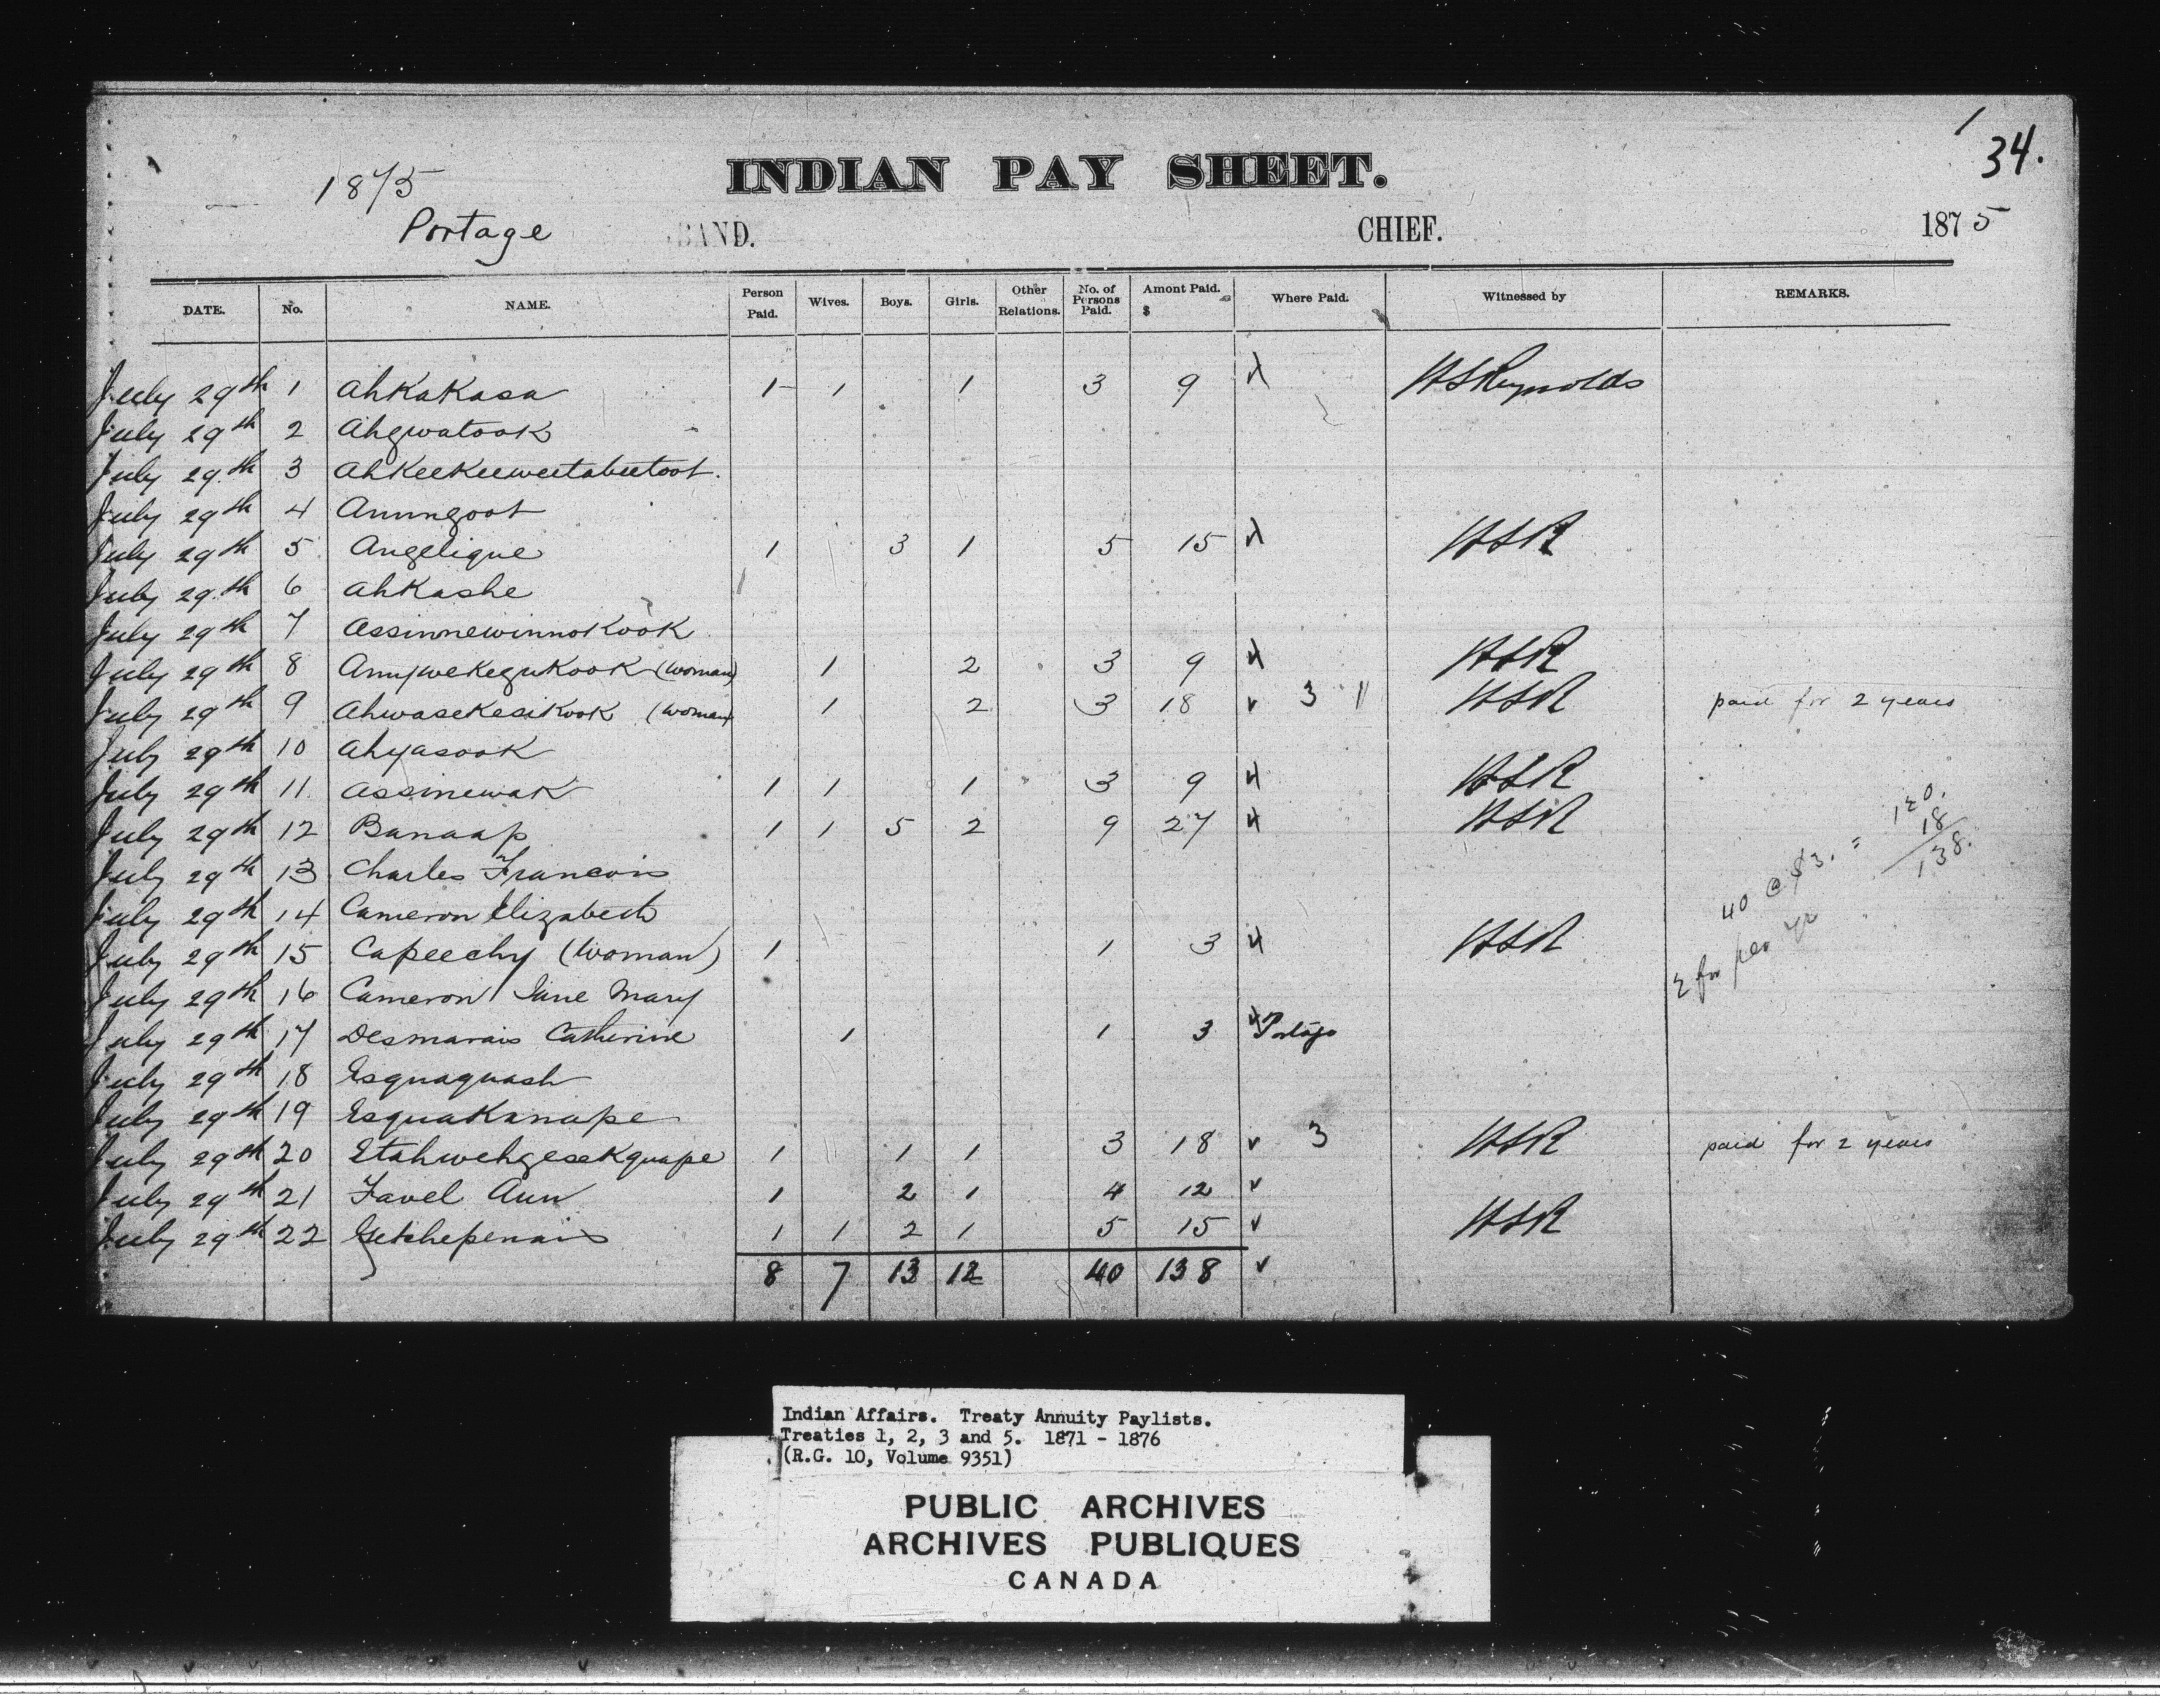 34.
INDIAN PAY SHEET.
1875
Portage BAND. CHIEF. 1875
DATE. No. NAME. Person Paid. Wives. Boys. Girls. Other Relations. No. of Persons Paid. Amont Paid. $ Where Paid. Witnessed by REMARKS.
July 29th 1 Ahkakasa 1 1 1 3 9 H S Reynolds
July 29th 2 Ahgwatook
July 29th 3 Ahkeekeeweetabeetoot.
July 29th 4 Anungoot
July 29th 5 Angelique 1 3 1 5 15 HSR
July 29th 6 Ahkashe
July 29th 7 Assinnewinnokook
July 29th 8 (woman) 1 2 3 9 4 HSR
July 29th 9 Ahwasekesikook (woman) 1 2 3 18 v 3 HSR paid for 2 years
July 29th 10 Ahyasook
July 29th 11 Assinewak 1 1 1 3 9 4 HSR
July 29th 12 Banaap 1 1 5 2 9 27 4 HSR
July 29th 13 Charles Francois
July 29th 14 Cameron Elizabeth
July 29th 15 Capeechy (Woman) 1 1 3 4 HSR
July 29th 16 Cameron Jane Mary
July 29th 17 Desmarais Catherine 1 1 3 4 Portage
July 29th 18 Esquaquash
July 29th 19 Esquakanape
July 29th 20 Etahwehgesekquape 1 1 1 3 18 v 3 HSR paid for 2 years
July 29th 21 Favel Ann 1 2 1 4 12 v
July 29th 22 Getchepenais 1 1 2 1 5 15 v HSR
8 7 13 12 40 138 v
40 @ $3. = 120.
18
138.
Indian Affairs. Treaty Annuity Paylists.
Treaties 1, 2, 3 and 5. 1871 - 1876
(R.G. 10, Volume 9351)
PUBLIC ARCHIVES
ARCHIVES PUBLIQUES
CANADA